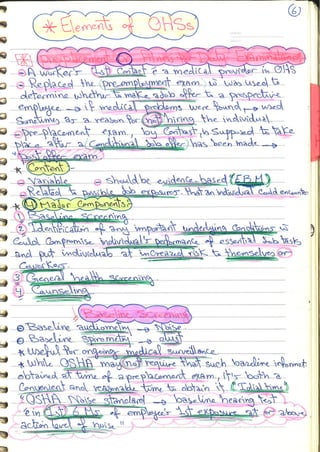 6
* Elements of OHSs
* Preplacement or Fitness for Duty Examinations
- A worker's 1st Contact c̄ a medical provider in OHS
- Replaced the preemployment exam, w was used to
determine whether to make a Job offer to a prospective
employee → if medical problems were found, → used
sometimes as a reason for not hiring the individual
- Pre-placement exam, by Contrast, is Supposed to take
place after a Conditional Job offer has been made →
Post offer exam
* Content:-
- Variable - Should be evidence based (EBM)
- Related to possible Job exposures that an individual Could encounter
* 4 Major Components:-
1 Baseline screening
2 Identification of any important underlying Conditions w
Could Compromise individual's performance of essential Job tasks
and put individuals at increased risk to themselves or
Coworkers
3 General health screening
4 Counseling
Baseline Screening
Baseline audiometry → Noise
Baseline spirometry → dust
* Useful for ongoing medical surveillance
* While OSHA may not require that such baseline informat
obtained at time of a preplacement exam, it's both a
Convenient and reasonable time to obtain it "Idial time"
"OSHA Noise standard → baseline hearing test
in 1st 6 Ms of employee's 1st exposure at or above
action level of noise"